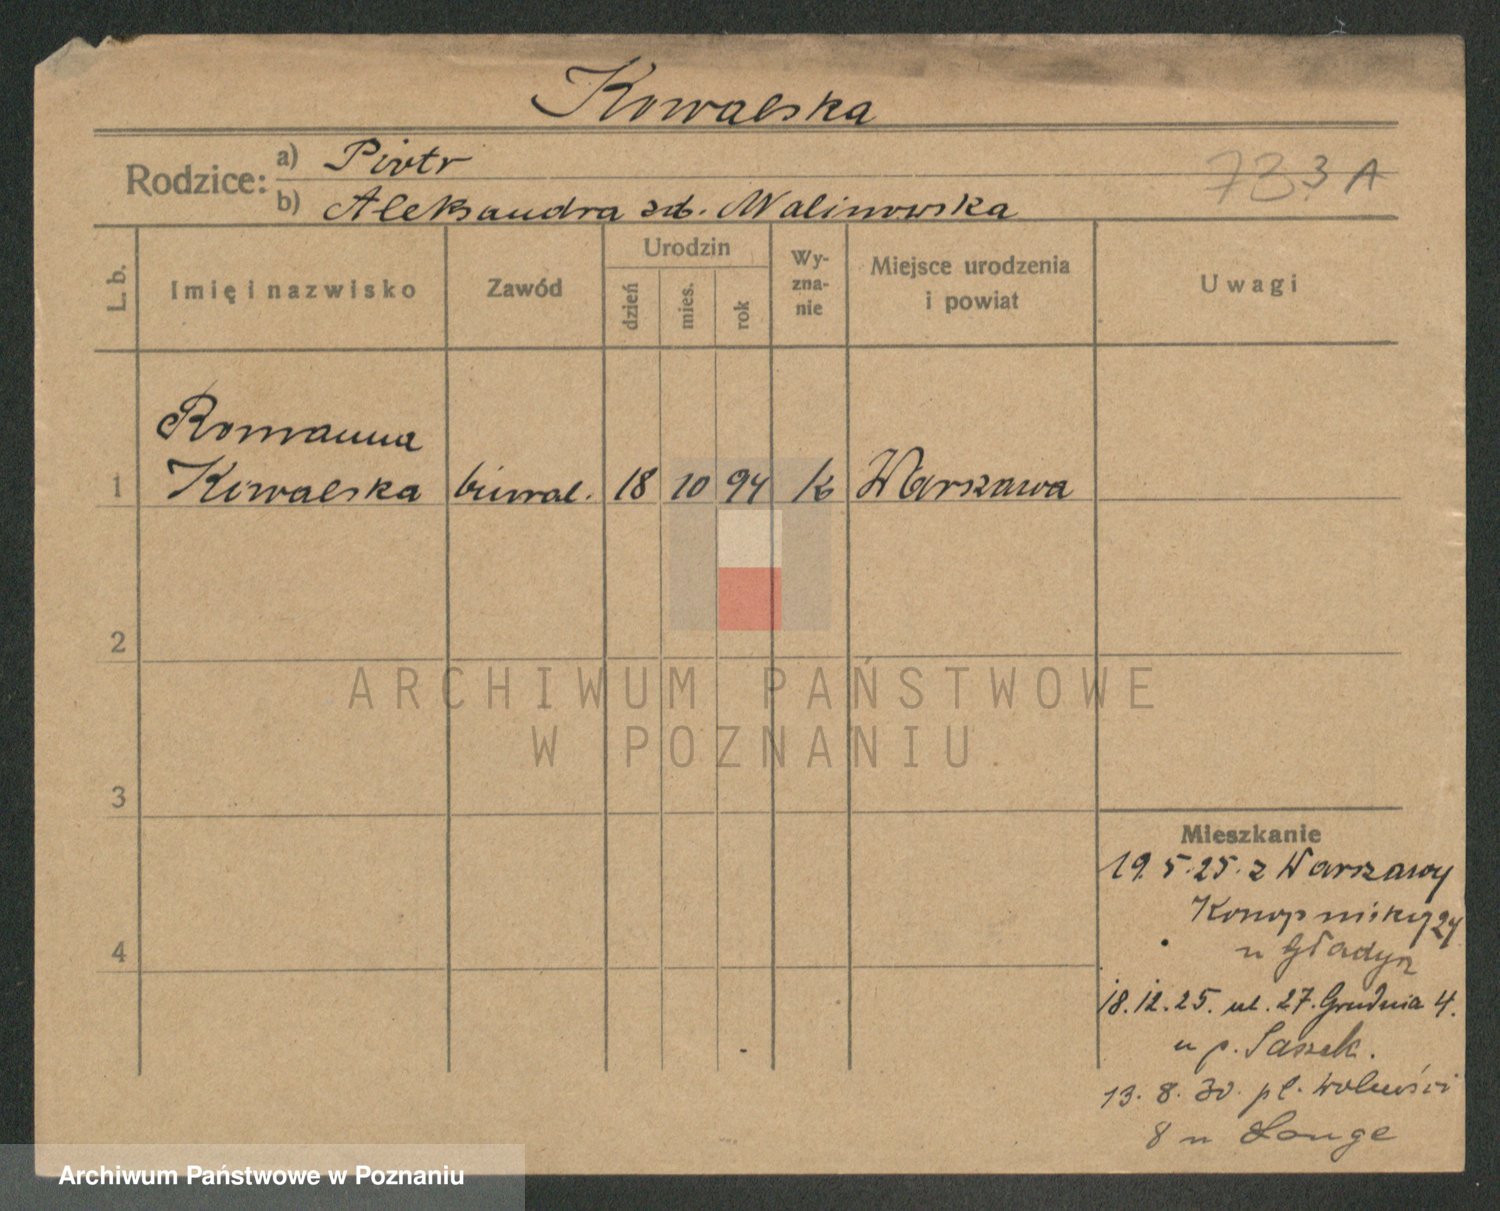 Kowalska
Rodzice: a) Piotr
b) Aleksandra zd. Malinowska
3 A
L. b.
Imię i nazwisko
Zawód
Urodzin
dzień
mies.
rok
Wy-
zna-
nie
Miejsce urodzenia
i powiat
Uwagi
Romanna
1 Kowalska biural. 18 10 94 k Warszawa
2
3
4
ARCHIWUM PAŃSTWOWE
W POZNANIU
Mieszkanie
19.5.25. z Warszawy
u Gładyz
18.12.25. ul. 27. Grudnia 4.
u p. Sassek.
13. 8. 30. pl. Wolności
8 u Lange
Archiwum Państwowe w Poznaniu